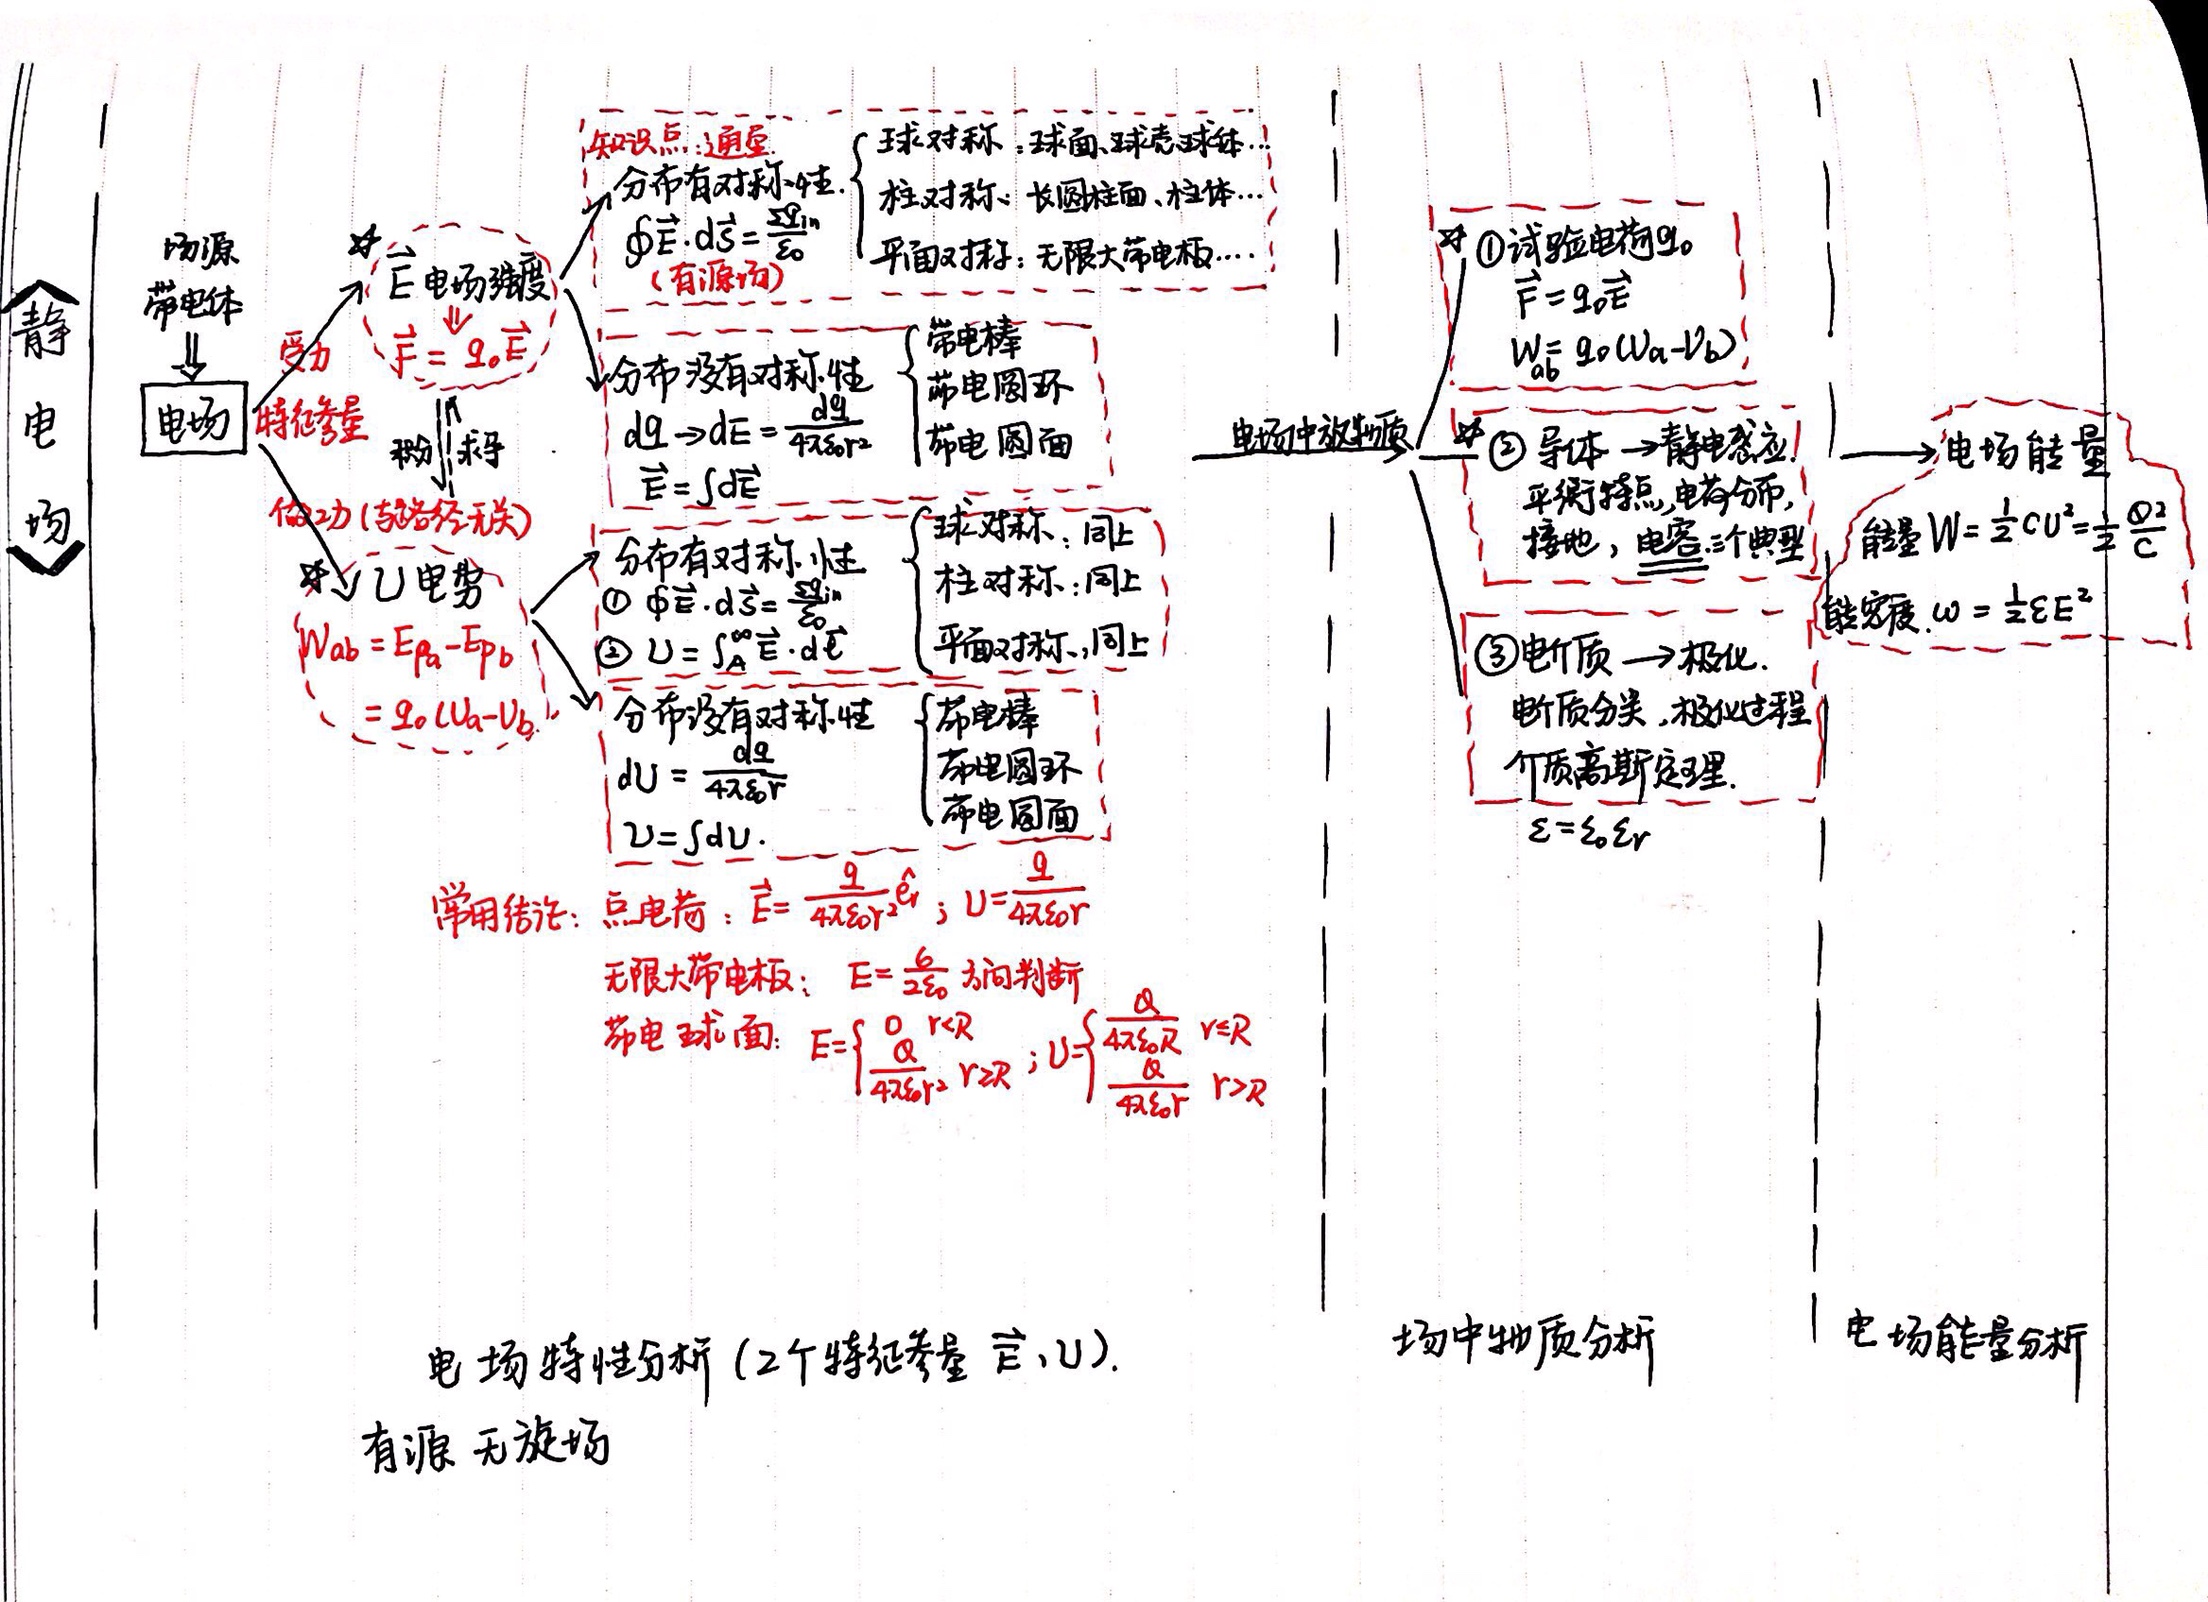 《静电场》
场源
带电体
⇓
电场
受力
特征参量
做功(与路径无关)
☆
E⃗ 电场强度
⇓
F⃗ = q₀E⃗
积分 求导
☆
U 电势
Wab = Epa - Epb
= q₀(Ua-Ub)
知识点:通量.
分布有对称性.
∮E⃗·dS⃗ = Σqin/ε₀
(有源场)
球对称:球面、球壳、球体…
柱对称:长圆柱面、柱体…
平面对称:无限大带电板….
分布没有对称性
dq→dE = dq/4πε₀r²
E⃗ = ∫dE⃗
带电棒
带电圆环
带电圆面
分布有对称性
① ∮E⃗·dS⃗ = Σqin/ε₀
② U = ∫A^∞ E⃗·dl⃗
球对称:同上
柱对称:同上
平面对称:同上
分布没有对称性
dU = dq/4πε₀r
U=∫dU.
带电棒
带电圆环
带电圆面
常用结论: 点电荷: E⃗ = q/4πε₀r² êr ; U = q/4πε₀r
无限大带电板: E = σ/2ε₀ 方向判断
带电球面: E = { 0 r<R ; Q/4πε₀r² r≥R ; U = { Q/4πε₀R r≤R ; Q/4πε₀r r>R
电场中放物质
☆ ①试验电荷q₀
F⃗ = q₀E⃗
Wab = q₀(Ua-Ub)
☆ ② 导体 → 静电感应.
平衡特点,电荷分布,
接地,电容三个典型
③电介质 → 极化.
电介质分类,极化过程
介质高斯定理.
ε = ε₀εr
电场能量
能量 W = ½CU² = ½ Q²/C
能密度.ω = ½εE²
电场特性分析(2个特征参量 E⃗、U).
有源 无旋场
场中物质分析
电场能量分析